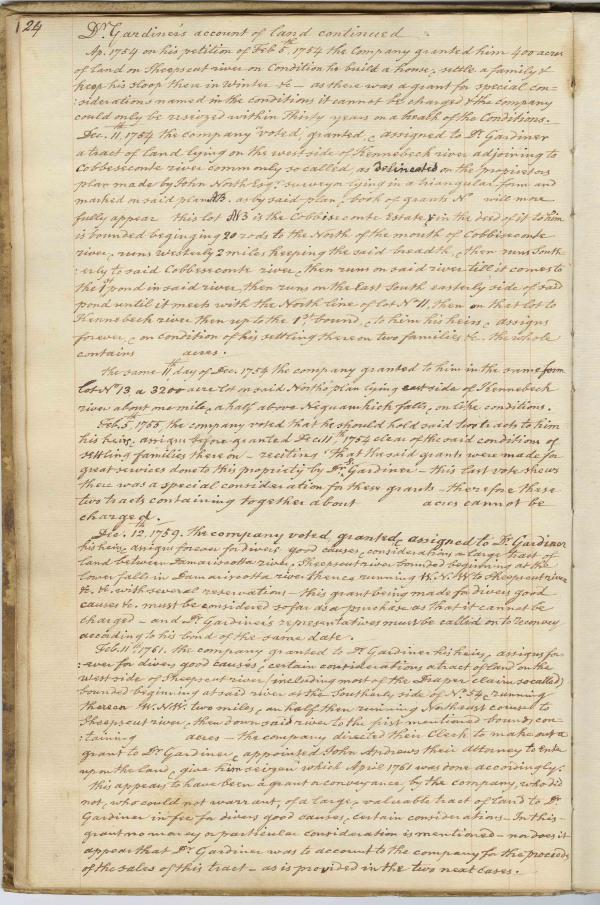 124
Dr. Gardiner's account of land continued
Ap. 1754 on his petition of Feb 5th, 1754 the Company granted him 400 acres
of land on Sheepscut river on Condition he build a house, settle a family &
keep his sloop there in Winter &c — as there was a grant for special con=
:siderations named in the conditions it cannot be charged & the company
could only be reseized within thirty years on a breach of the Conditions.
Dec. 11th, 1754 the company "voted, granted, & assigned to Dr. Gardiner
a tract of land lying on the west side of Kennebeck river adjoining to
Cobbeseconte river commonly so called, as delineated on the proprietors
plan made by John North Esq. surveyor lying in a triangular form and
marked on said plan AB. as by said plan, & book of grants No. will more
fully appear this lot AB is the Cobbiseconte Estate, & in the deed of it to him
is bounded beginging 20 rods to the North of the mouth of Cobbiseconte
river, runs westerly 2 miles keeping the said breadth, then runs South=
:erly to said Cobbeseconte river, then runs on said river till it comes to
the 1st pond in said river, then runs on the East South easterly side of said
pond until it meets with the North line of lot No. 11, then on that lot to
Kennebeck river then up to the 1st. bound, to him his heirs & assigns
forever, on condition of his settling there on two families &c. the whole
contains acres.
the same 11th day of Dec. 1754 the company granted to him in the same form
lot No. 13 a 3200 acre lot on said North's plan lying east side of Kennebeck
river about one mile & a half above Neguamkich falls, on like conditions.
Feb. 5th, 1755, the company voted that he should hold said two tracts to him
his heirs & assigns before granted Dec. 11th, 1754 clear of the said conditions of
settling families there on — reciting "That the said grants were made for
great services done to this propriety by Dr. Gardiner — this last vote shews
there was a special consideration for these grants — therefore these
two tracts containing together about acres cannot be
charged.
Dec. 12th, 1759. the company voted granted & assigned to Dr. Gardiner
his heirs & assigns forever for divers good causes & considerations a large tract of
land between Damariscotta river & Sheepscut river bounded beginning at the
lower falls in Damariscotta river thence running W. N. W to Sheepscut river
&c. &c. with several reservations — this grant being made for divers good
causes &c. must be considered so far as a purchase as that it cannot be
charged — and Dr. Gardiner's representatives must be called on to reconvey
according to his bond of the same date.
Feb. 11th 1761. the company granted to Dr. Gardiner his heirs & assigns for=
:ever for divers good causes, & certain considerations a tract of land on the
west side of Sheepscut river (including most of the Draper claim so called)
bounded beginning at said river at the Southerly side of No. 54, running
thereon W. N W. two miles & an half then running Northeast course to
Sheepscut river, then down said river to the first mentioned bounds, con=
:taining acres — the company directed their Clerk to make out a
grant to Dr. Gardiner, & appointed John Andrews their Attorney to enter
upon the land, & give him seizen" which April 1761 was done accordingly.
this appears to have been a grant or conveyance, by the company, who did
not, who could not warrant, of a large & valuable tract of land to Dr
Gardiner in fee for divers good causes, & certain considerations — In this
grant no money or particular consideration is mentioned — nor does it
appear that Dr. Gardiner was to account to the company for the proceeds
of the sales of this tract — as is provided in the two next cases.